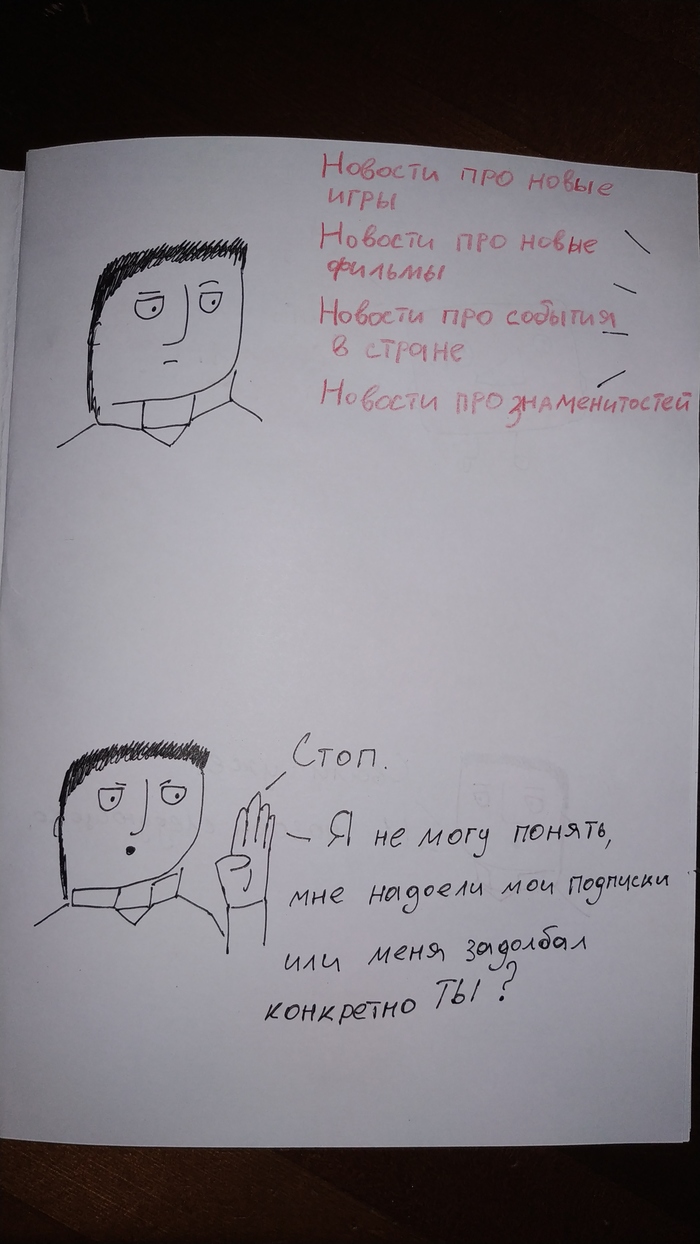 Новости про новые
игры
Новости про новые
фильмы
Новости про события
в стране
Новости про знаменитостей
Стоп.
— Я не могу понять,
мне надоели мои подписки
или меня задолбал
конкретно ТЫ?